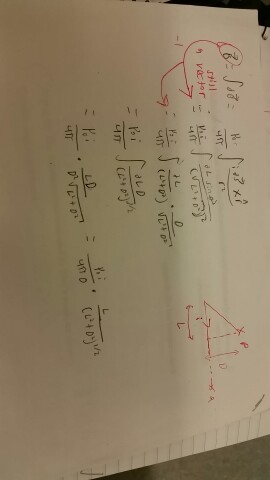 B⃗ = ∫ dB⃗ = μ₀i/4π ∫ dl⃗ × r̂ / r²
still
a
vector
-1
= μ₀i/4π ∫
= μ₀i/4π ∫ dL/(L²+D²) · D/√(L²+D²)
= μ₀i/4π ∫ dLD/(L²+D²)^3/2
= μ₀i/4π · LD/D²√(L²+D²) = μ₀i/4πD · L/(L²+D²)^1/2
P
D
i
L